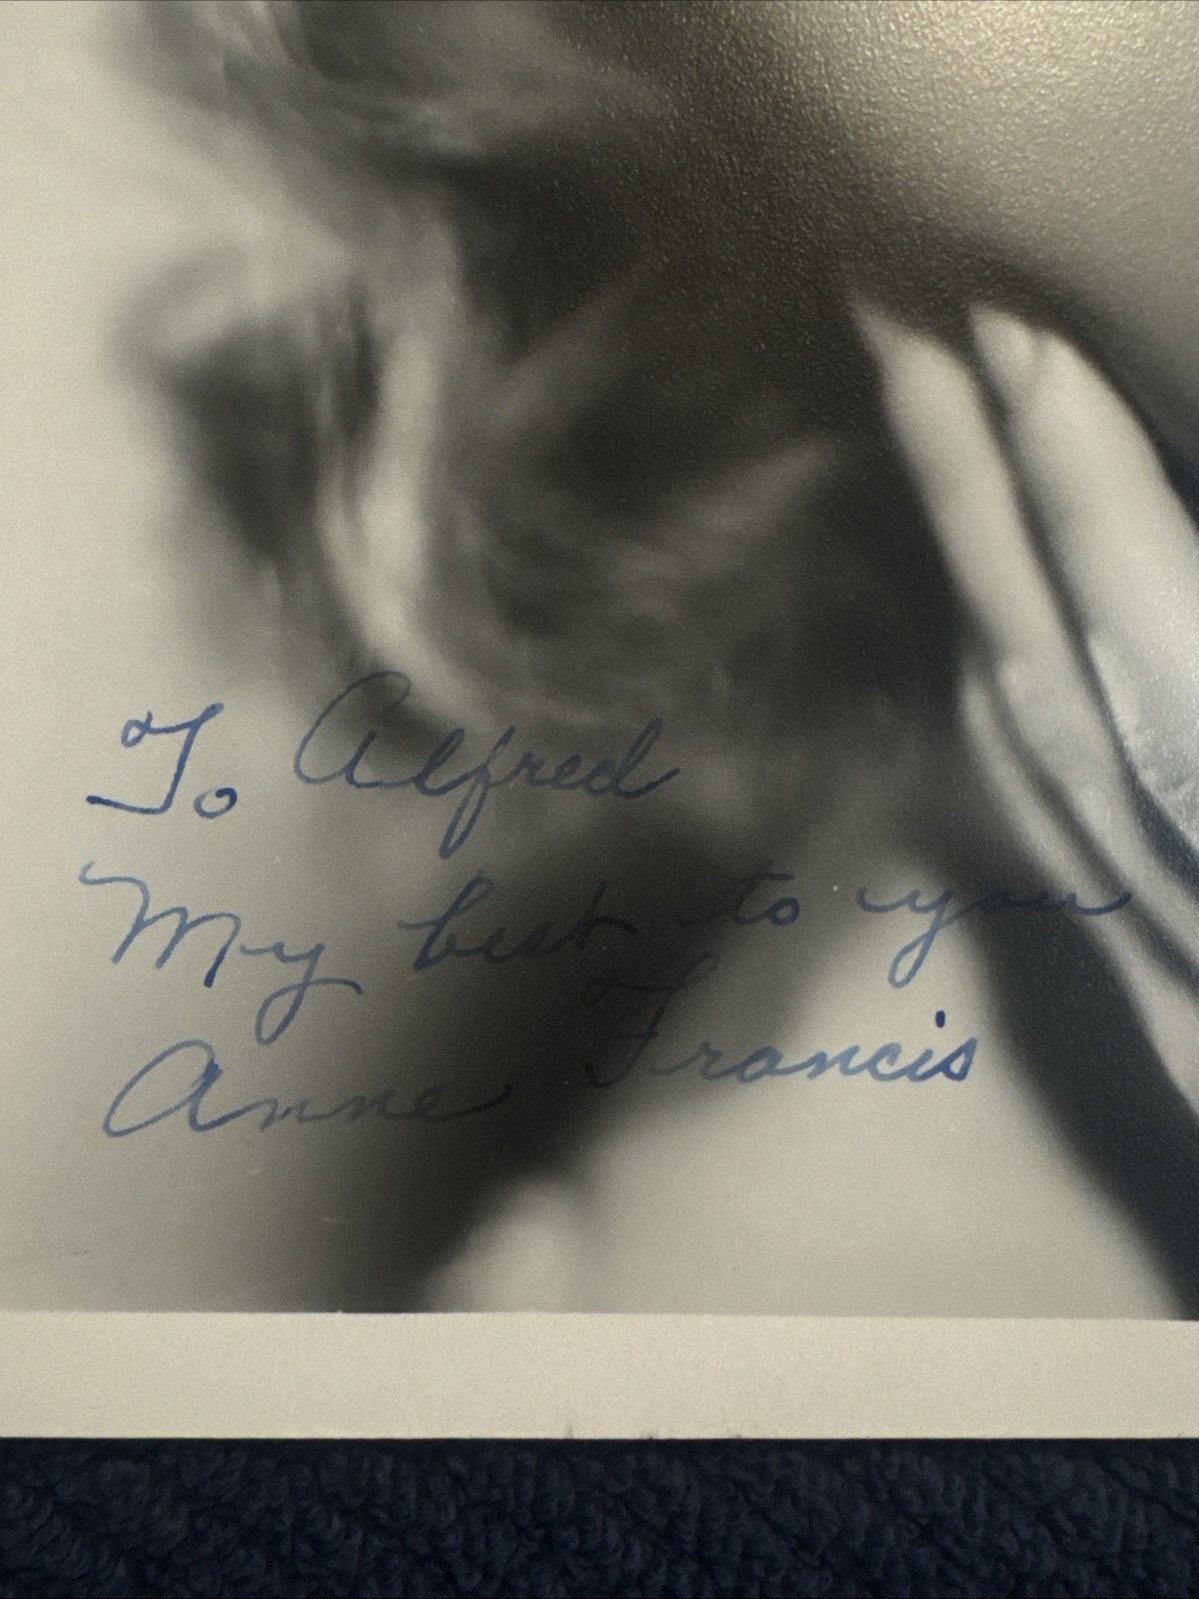 To Alfred
My best to you
Anne Francis